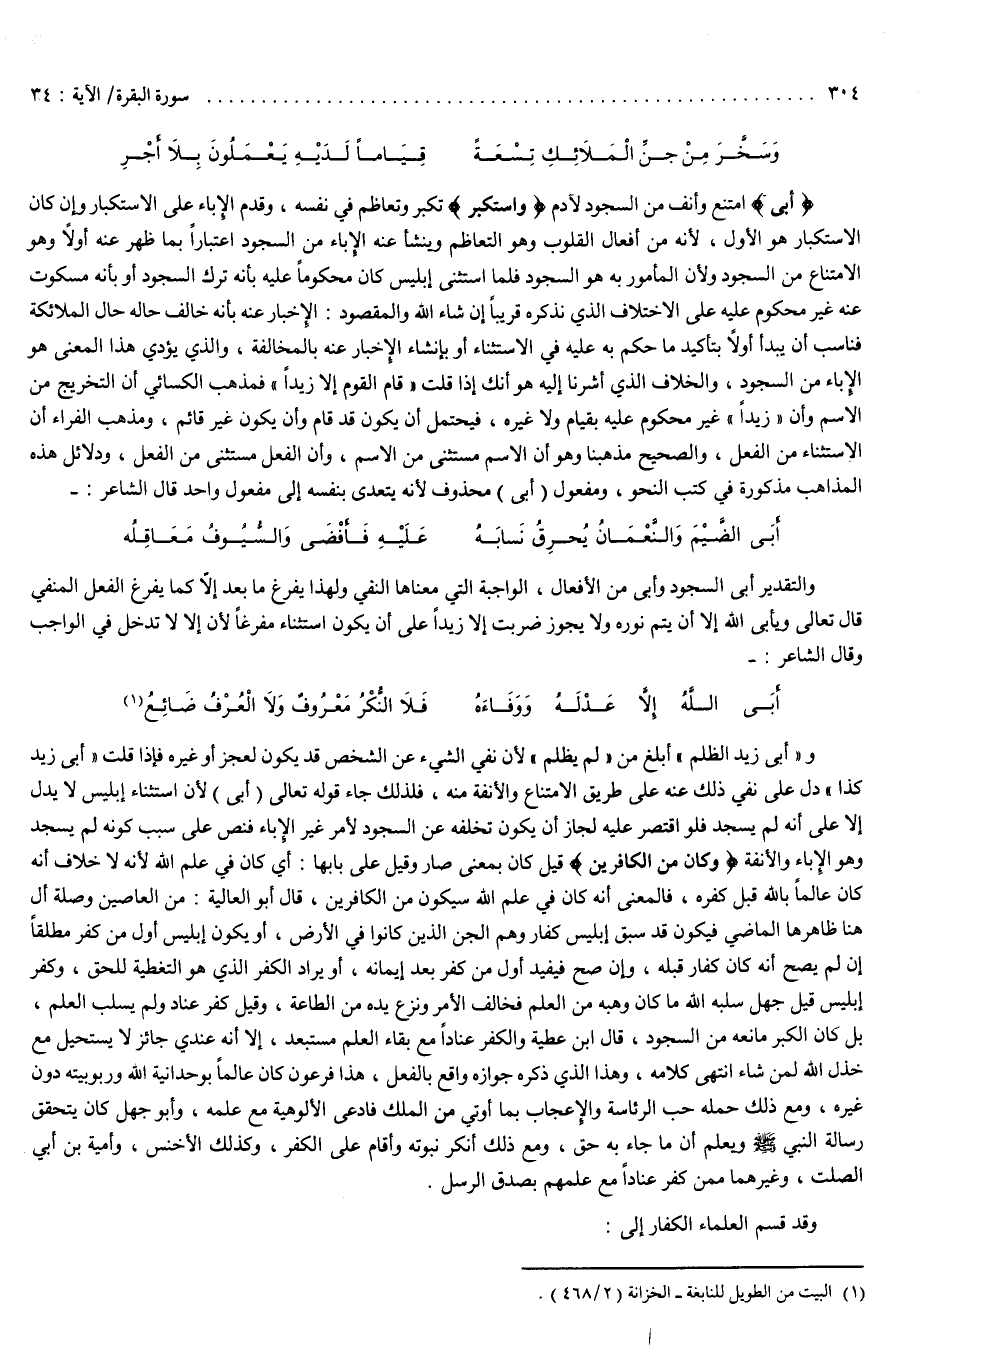 ٣٠٤ ........................................................ سورة البقرة/ الآية : ٣٤
وَسَخَّرَ مِنْ جِنِّ الْمَلَائِكِ تِسْعَةً قِيَاماً لَدَيْهِ يَعْمَلُونَ بِلَا أَجْرِ
﴿ أبى ﴾ امتنع وأنف من السجود لآدم ﴿ واستكبر ﴾ تكبر وتعاظم في نفسه ، وقدم الإباء على الاستكبار وإن كان
الاستكبار هو الأول ، لأنه من أفعال القلوب وهو التعاظم وينشأ عنه الإباء من السجود اعتباراً بما ظهر عنه أولاً وهو
الامتناع من السجود ولأن المأمور به هو السجود فلما استثنى إبليس كان محكوماً عليه بأنه ترك السجود أو بأنه مسكوت
عنه غير محكوم عليه على الاختلاف الذي نذكره قريباً إن شاء الله والمقصود : الإخبار عنه بأنه خالف حاله حال الملائكة
فناسب أن يبدأ أولاً بتأكيد ما حكم به عليه في الاستثناء أو بإنشاء الإخبار عنه بالمخالفة ، والذي يؤدي هذا المعنى هو
الإباء من السجود ، والخلاف الذي أشرنا إليه هو أنك إذا قلت « قام القوم إلا زيداً » فمذهب الكسائي أن التخريج من
الاسم وأن « زيداً » غير محكوم عليه بقيام ولا غيره ، فيحتمل أن يكون قد قام وأن يكون غير قائم ، ومذهب الفراء أن
الاستثناء من الفعل ، والصحيح مذهبنا وهو أن الاسم مستثنى من الاسم ، وأن الفعل مستثنى من الفعل ، ودلائل هذه
المذاهب مذكورة في كتب النحو ، ومفعول ( أبى ) محذوف لأنه يتعدى بنفسه إلى مفعول واحد قال الشاعر : ـ
أَبَى الضَّيْمَ وَالنُّعْمَانُ يُحرِقُ نَابَهُ عَلَيْهِ فَأَفْضَى وَالسُّيُوفُ مَعَاقِلُه
والتقدير أبى السجود وأبى من الأفعال ، الواجبة التي معناها النفي ولهذا يفرغ ما بعد إلّا كما يفرغ الفعل المنفي
قال تعالى ويأبى الله إلا أن يتم نوره ولا يجوز ضربت إلا زيداً على أن يكون استثناء مفرغاً لأن إلا لا تدخل في الواجب
وقال الشاعر : ـ
أَبَى اللَّهُ إِلَّا عَدْلَهُ وَوَفَاءَهُ فَلَا النُّكْرُ مَعْرُوفٌ وَلَا الْعُرْفُ ضَائِعُ(١)
و « أبى زيد الظلم » أبلغ من « لم يظلم » لأن نفي الشيء عن الشخص قد يكون لعجز أو غيره فإذا قلت « أبى زيد
كذا » دل على نفي ذلك عنه على طريق الامتناع والأنفة منه ، فلذلك جاء قوله تعالى ( أبى ) لأن استثناء إبليس لا يدل
إلا على أنه لم يسجد فلو اقتصر عليه لجاز أن يكون تخلفه عن السجود لأمر غير الإباء فنص على سبب كونه لم يسجد
وهو الإباء والأنفة ﴿ وكان من الكافرين ﴾ قيل كان بمعنى صار وقيل على بابها : أي كان في علم الله لأنه لا خلاف أنه
كان عالماً بالله قبل كفره ، فالمعنى أنه كان في علم الله سيكون من الكافرين ، قال أبو العالية : من العاصين وصلة أل
هنا ظاهرها الماضي فيكون قد سبق إبليس كفار وهم الجن الذين كانوا في الأرض ، أو يكون إبليس أول من كفر مطلقاً
إن لم يصح أنه كان كفار قبله ، وإن صح فيفيد أول من كفر بعد إيمانه ، أو يراد الكفر الذي هو التغطية للحق ، وكفر
إبليس قيل جهل سلبه الله ما كان وهبه من العلم فخالف الأمر ونزع يده من الطاعة ، وقيل كفر عناد ولم يسلب العلم ،
بل كان الكبر مانعه من السجود ، قال ابن عطية والكفر عناداً مع بقاء العلم مستبعد ، إلا أنه عندي جائز لا يستحيل مع
خذل الله لمن شاء انتهى كلامه ، وهذا الذي ذكره جوازه واقع بالفعل ، هذا فرعون كان عالماً بوحدانية الله وربوبيته دون
غيره ، ومع ذلك حمله حب الرئاسة والإعجاب بما أوتي من الملك فادعى الألوهية مع علمه ، وأبو جهل كان يتحقق
رسالة النبي ﷺ ويعلم أن ما جاء به حق ، ومع ذلك أنكر نبوته وأقام على الكفر ، وكذلك الأخنس ، وأمية بن أبي
الصلت ، وغيرهما ممن كفر عناداً مع علمهم بصدق الرسل .
وقد قسم العلماء الكفار إلى :
(١) البيت من الطويل للنابغة ـ الخزانة ( ٤٦٨/٢ ) .